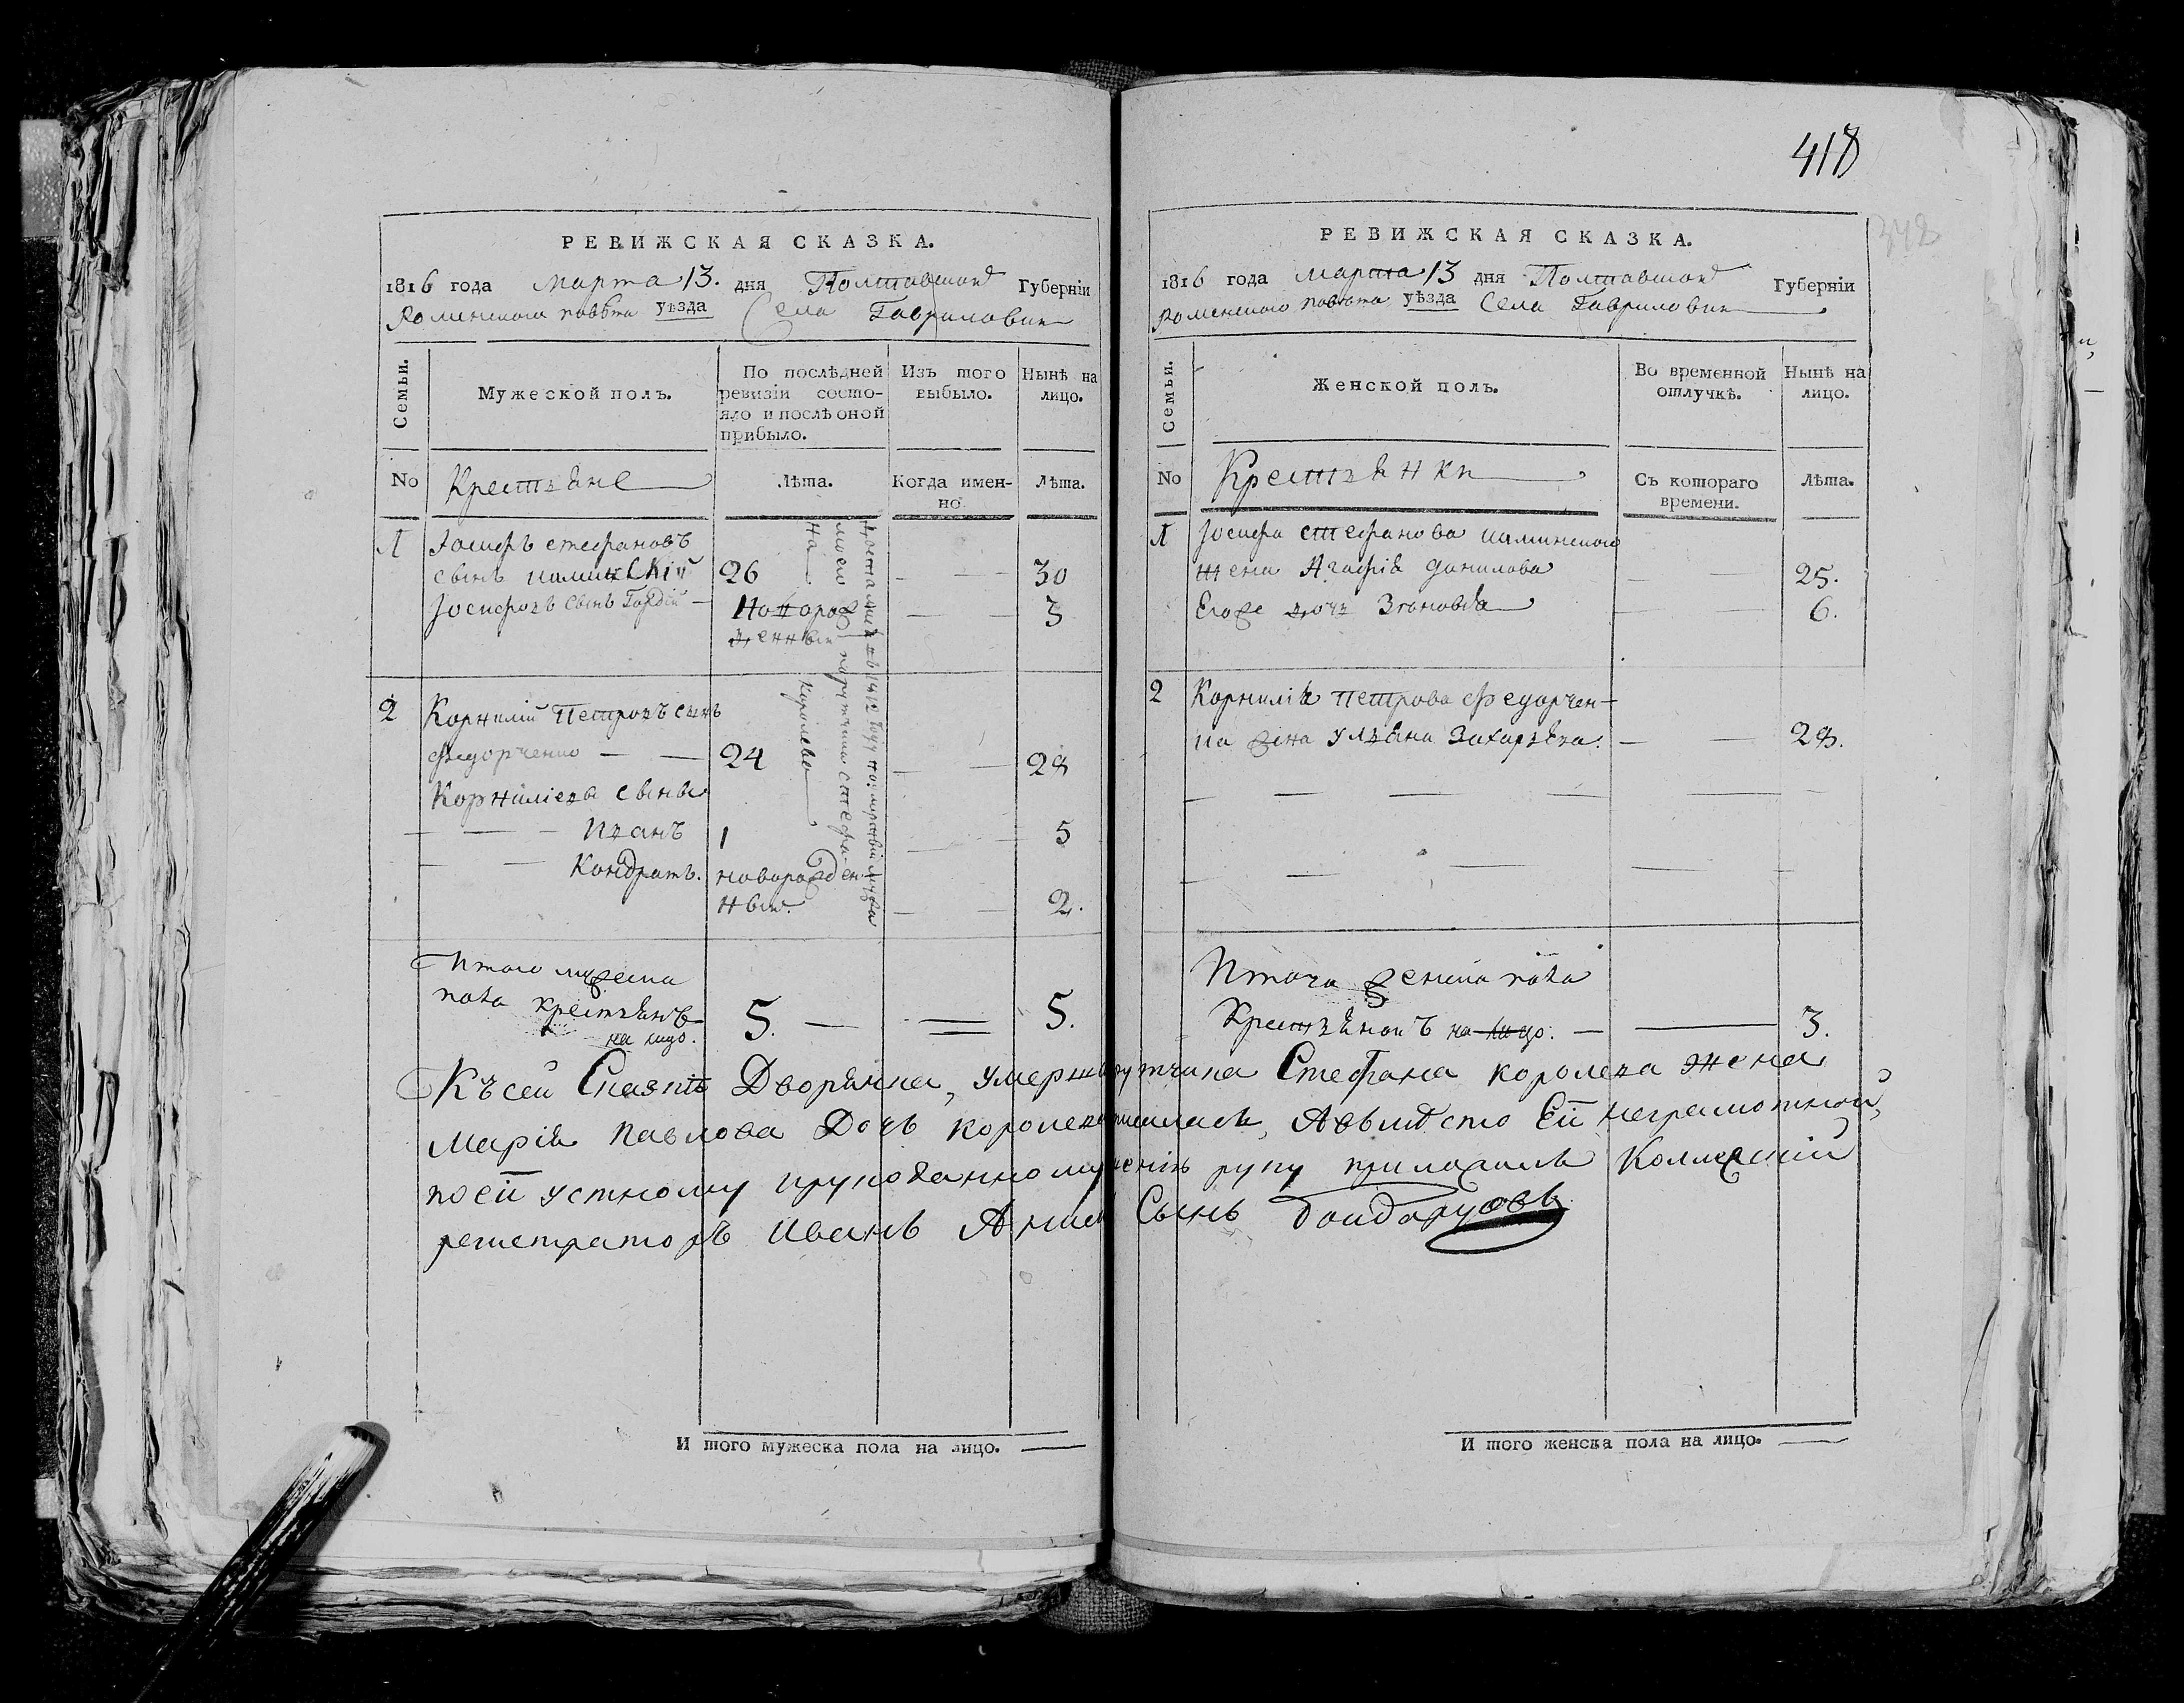 418
РЕВИЖСКАЯ СКАЗКА.
1816 года марта 13. дня Полтавской Губерніи
Роменского повѣта уѣзда Села Гавриловки
Семьи.
Мужеской полъ.
По послѣдней ревизіи состо-
яло и послѣ оной
прибыло.
Изъ того
выбыло.
Нынѣ на
лицо.
No
Крестьяне
Лѣта.
Когда имен-
но
Лѣта.
1 Іосифъ стефановъ
сынъ 26 30
Іосифовъ сынъ Гордій Новорож 3
денный
доставшіися въ 1812 году по мужа
моего порутчика стефа-
на
королева
2 Корнилій Петровъ сынъ
Федорченко 24 28
Корниліева сыны
Иванъ 1 5
Кондратъ. новорожден
ный. 2.
Итого мужеска
пола крестьянъ
на лицо. 5. 5.
РЕВИЖСКАЯ СКАЗКА.
1816 года марта 13 дня Полтавской Губерніи
Роменского повѣта уѣзда Села Гавриловки
Семьи.
Женской полъ.
Во временной
отлучкѣ.
Нынѣ на
лицо.
No
Крестьянки
Съ котораго
времени.
Лѣта.
1 Іосифа стефанова
жена Агафія данилова 25.
Егоже дочь Зѣновія 6.
2 Корнилія петрова федорчен-
ка жена Ульяна Захарьева. 28.
Итого женска пола
Крестьянокъ на лицо. 3.
Къ сей Сказкѣ Дворянка, умершаго порутчика Стефана королева жена
Марія павлова Дочь королева, Авмѣсто Ей неграмотной,
по ей устному руку приложилъ Коллежскій
регистраторъ Иванъ Сынъ
И того мужеска пола на лицо.
И того женска пола на лицо.